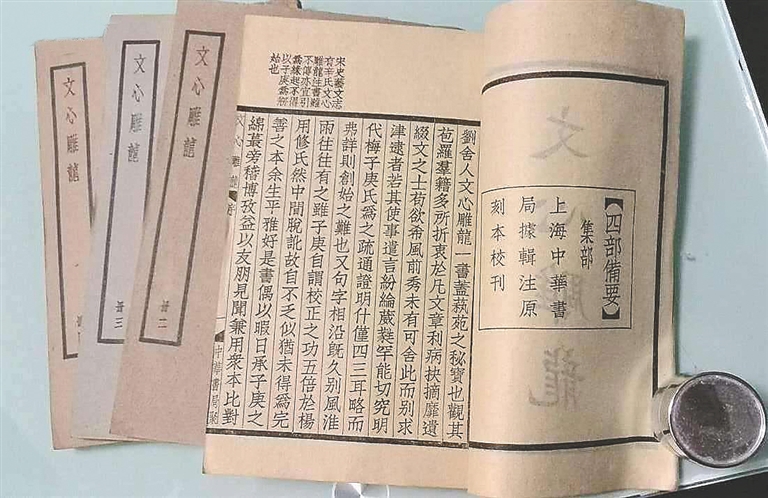 【四部備要】
集部
上海中華書
局據輯注原
刻本校刊
宋史藝文志
有辛氏文心
雕龍注書雖
不傳亦宜引
爲緣起不得
以子庚爲剏
始也
劉舍人文心雕龍一書蓋蓺苑之秘寶也觀其
苞羅羣籍多所折衷於凡文章利病抉摘靡遺
綴文之士苟欲希風前秀未有可舍此而别求
津逮者若其使事遣言紛綸葳蕤罕能切究明
代梅子庚氏爲之疏通證明什僅四三耳略而
弗詳則創始之難也又句字相沿旣久别風淮
雨往往有之雖子庚自謂校正之功五倍於楊
用修氏然中間脫訛故自不乏似猶未得爲完
善之本余生平雅好是書偶以暇日承子庚之
綿蕞旁稽博攷益以友朋見聞兼用衆本比對
文心雕龍 序 一 中華書局聚
文心雕龍 卌二
文心雕龍 卌三
文心雕龍